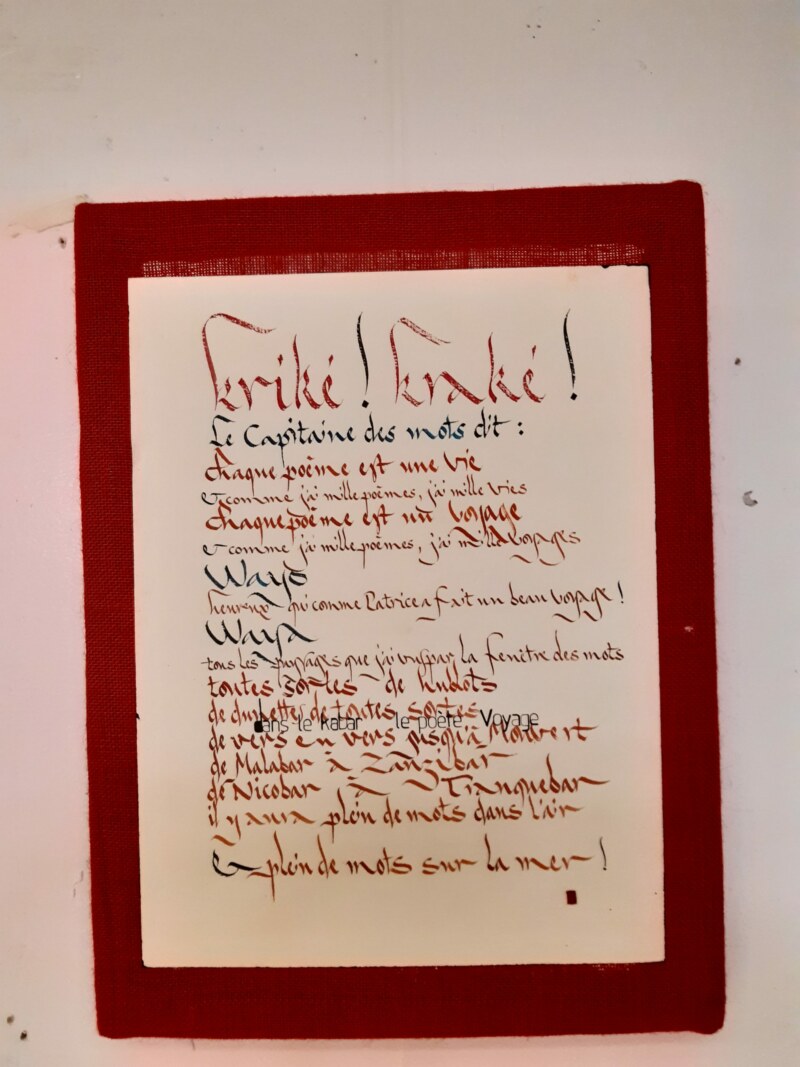 Kriké ! Kraké !
Le Capitaine des mots dit :
chaque poème est une vie
& comme j'ai mille poèmes, j'ai mille vies
chaque poème est un voyage
& comme j'ai mille poèmes, j'ai mille voyages
Ways
heureux qui comme Patrice a fait un beau voyage !
Waya
tous les paysages que j'ai vus par la fenêtre des mots
toutes sortes de hublots
de toutes sortes
dans le kabar le poète voyage
de vers en vers jusqu'à
de Malabar à Zanzibar
de Nicobar à Tranquebar
il y aura plein de mots dans l'air
& plein de mots sur la mer !